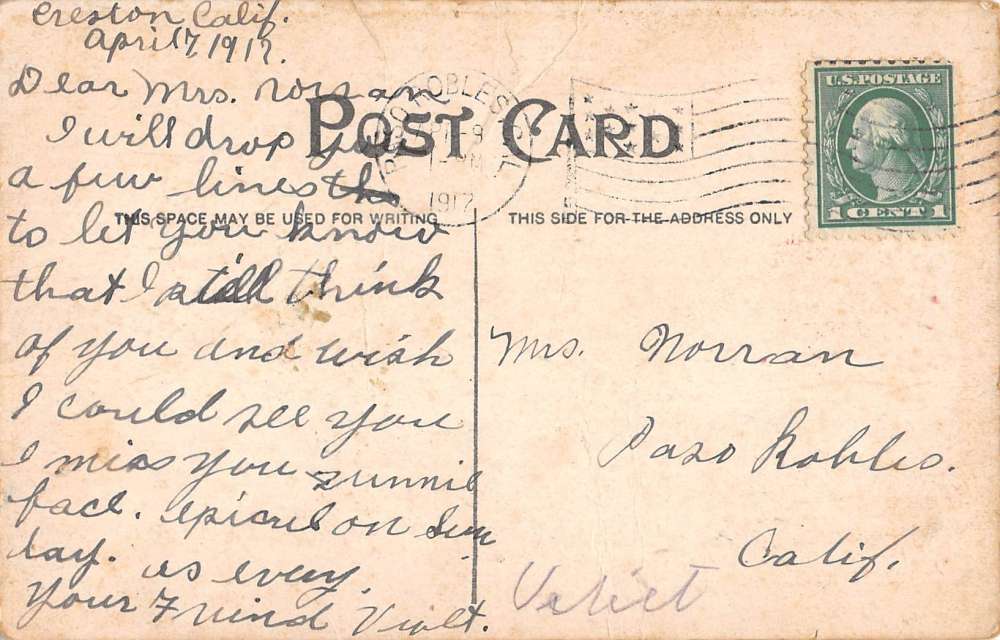 Creston Calif.
April 7, 1917.
Dear Mrs. Norran
I will drop you
a few lines th
to let you know
that I still think
of you and wish
I could see you
I miss you sunnie
face. on Sun
day. as every,
your Friend Violt.
POST CARD
PASO ROBLES
1917
THIS SPACE MAY BE USED FOR WRITING
THIS SIDE FOR THE ADDRESS ONLY
U.S. POSTAGE
1 CENT 1
Mrs. Norran
Paso Robles.
Calif.